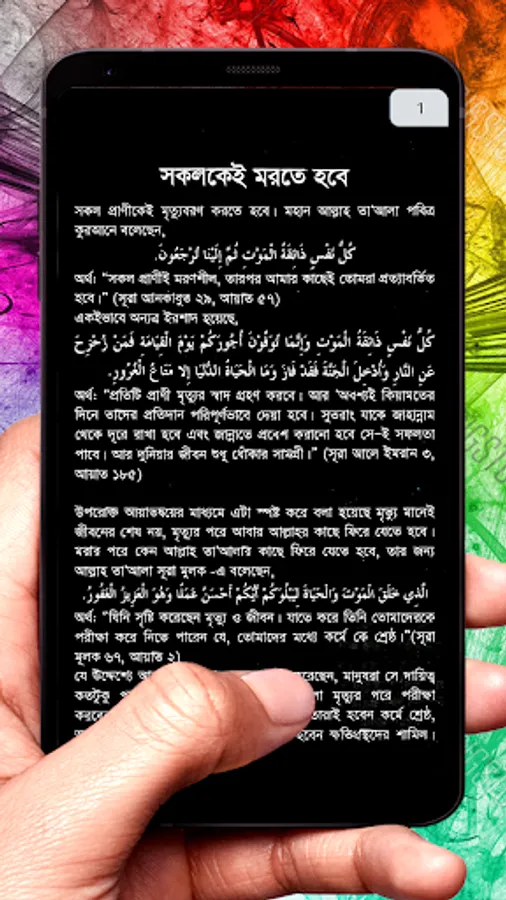 1
সকলকেই মরতে হবে
সকল প্রাণীকেই মৃত্যুবরণ করতে হবে। মহান আল্লাহ তা'আলা পবিত্র
কুরআনে বলেছেন,
كُلُّ نَفْسٍ ذَائِقَةُ الْمَوْتِ ثُمَّ إِلَيْنَا تُرْجَعُونَ.
অর্থ: “সকল প্রাণীই মরণশীল, তারপর আমার কাছেই তোমরা প্রত্যাবর্তিত
হবে।” (সূরা আনকাবুত ২৯, আয়াত ৫৭)
একইভাবে অন্যত্র ইরশাদ হয়েছে,
كُلُّ نَفْسٍ ذَائِقَةُ الْمَوْتِ وَإِنَّمَا تُوَفَّوْنَ أُجُورَكُمْ يَوْمَ الْقِيَامَةِ فَمَنْ زُحْزِحَ
عَنِ النَّارِ وَأُدْخِلَ الْجَنَّةَ فَقَدْ فَازَ وَمَا الْحَيَاةُ الدُّنْيَا إِلا مَتَاعُ الْغُرُورِ.
অর্থ: “প্রতিটি প্রাণী মৃত্যুর স্বাদ গ্রহণ করবে। আর ‘অবশ্যই কিয়ামতের
দিনে তাদের প্রতিদান পরিপূর্ণভাবে দেয়া হবে। সুতরাং যাকে জাহান্নাম
থেকে দূরে রাখা হবে এবং জান্নাতে প্রবেশ করানো হবে সে-ই সফলতা
পাবে। আর দুনিয়ার জীবন শুধু ধোঁকার সামগ্রী।” (সূরা আলে ইমরান ৩,
আয়াত ১৮৫)
উপরোক্ত আয়াতদ্বয়ের মাধ্যমে এটা স্পষ্ট করে বলা হয়েছে মৃত্যু মানেই
জীবনের শেষ নয়, মৃত্যুর পরে আবার আল্লাহর কাছে ফিরে যেতে হবে।
মরার পরে কেন আল্লাহ তা'আলার কাছে ফিরে যেতে হবে, তার জন্য
আল্লাহ তা'আলা সূরা মুলক -এ বলেছেন,
الَّذِي خَلَقَ الْمَوْتَ وَالْحَيَاةَ لِيَبْلُوَكُمْ أَيُّكُمْ أَحْسَنُ عَمَلًا وَهُوَ الْعَزِيزُ الْغَفُورُ.
অর্থ: “যিনি সৃষ্টি করেছেন মৃত্যু ও জীবন। যাতে করে তিনি তোমাদেরকে
পরীক্ষা করে নিতে পারেন যে, তোমাদের মধ্যে কর্মে কে শ্রেষ্ঠ।”(সূরা
মূলক ৬৭, আয়াত ২)
যে উদ্দেশ্যে করেছেন, মানুষরা সে দায়িত্ব
কতটুকু মৃত্যুর পরে পরীক্ষা
করবে তারাই হবেন কর্মে শ্রেষ্ঠ,
হবেন ক্ষতিগ্রস্থদের শামিল।